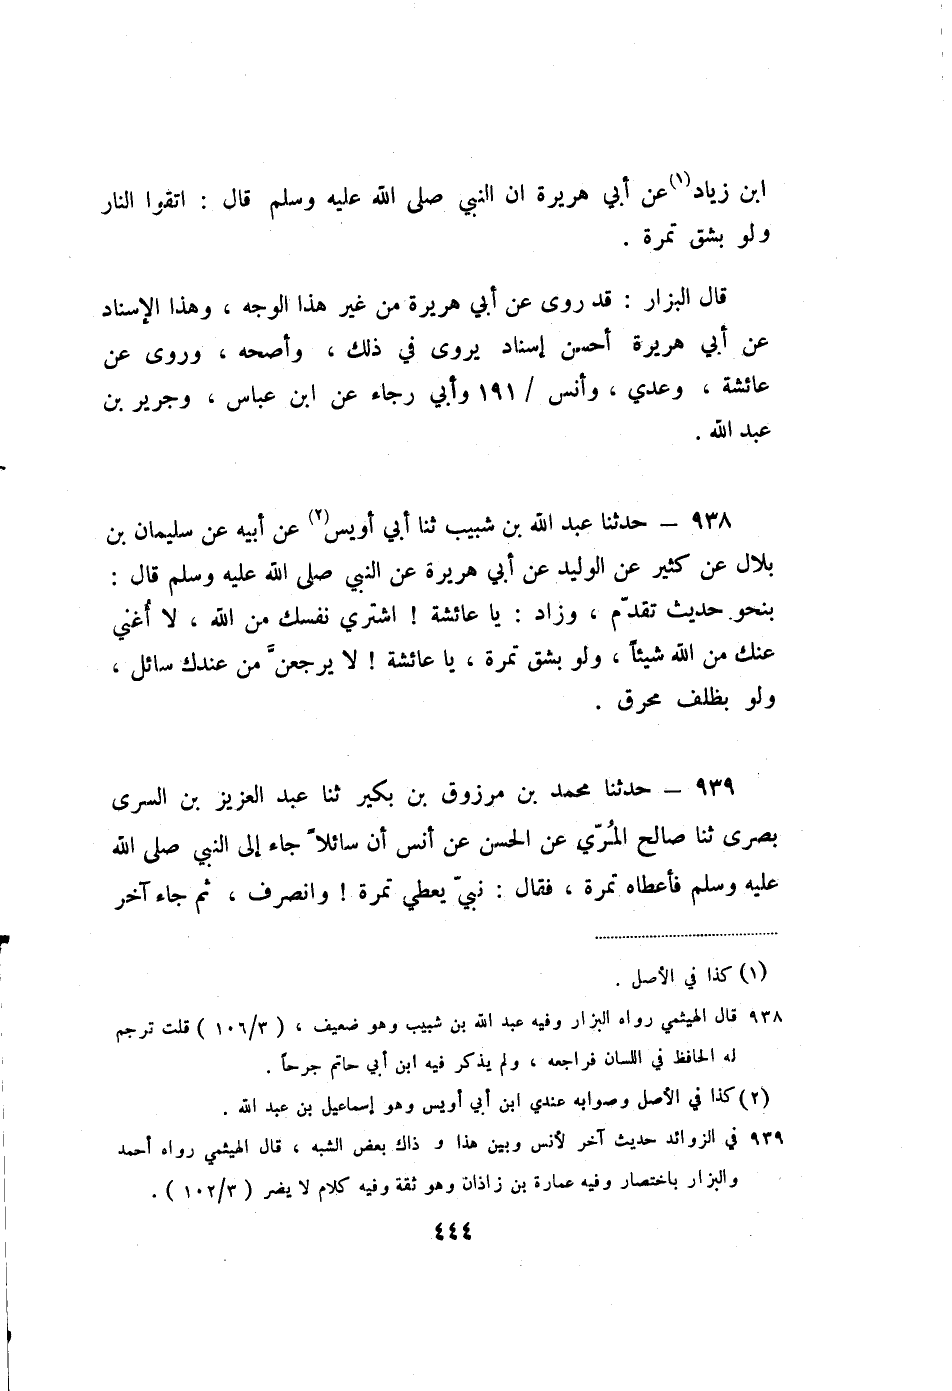 ابن زياد(١) عن أبي هريرة ان النبي صلى الله عليه وسلم قال : اتقوا النار
ولو بشق تمرة .
قال البزار : قد روى عن أبي هريرة من غير هذا الوجه ، وهذا الإسناد
عن أبي هريرة أحسن إسناد يروى في ذلك ، وأصحه ، وروى عن
عائشة ، وعدي ، وأنس / ١٩١ وأبي رجاء عن ابن عباس ، وجرير بن
عبد الله .
٩٣٨ – حدثنا عبد الله بن شبيب ثنا أبي أويس(٢) عن أبيه عن سليمان بن
بلال عن كثير عن الوليد عن أبي هريرة عن النبي صلى الله عليه وسلم قال :
بنحو حديث تقدّم ، وزاد : يا عائشة ! اشتري نفسك من الله ، لا أُغني
عنك من الله شيئاً ، ولو بشق تمرة ، يا عائشة ! لا يرجعنّ من عندك سائل ،
ولو بظلف محرق .
٩٣٩ – حدثنا محمد بن مرزوق بن بكير ثنا عبد العزيز بن السرى
بصرى ثنا صالح المُرّي عن الحسن عن أنس أن سائلاً جاء إلى النبي صلى الله
عليه وسلم فأعطاه تمرة ، فقال : نبيّ يعطي تمرة ! وانصرف ، ثم جاء آخر
(١) كذا في الأصل .
٩٣٨ قال الهيثمي رواه البزار وفيه عبد الله بن شبيب وهو ضعيف ، ( ١٠٦/٣ ) قلت ترجم
له الحافظ في اللسان فراجعه ، ولم يذكر فيه ابن أبي حاتم جرحاً .
(٢) كذا في الأصل وصوابه عندي ابن أبي أويس وهو إسماعيل بن عبد الله .
٩٣٩ في الزوائد حديث آخر لأنس وبين هذا و ذاك بعض الشبه ، قال الهيثمي رواه أحمد
والبزار باختصار وفيه عمارة بن زاذان وهو ثقة وفيه كلام لا يضر ( ١٠٢/٣ ) .
٤٤٤